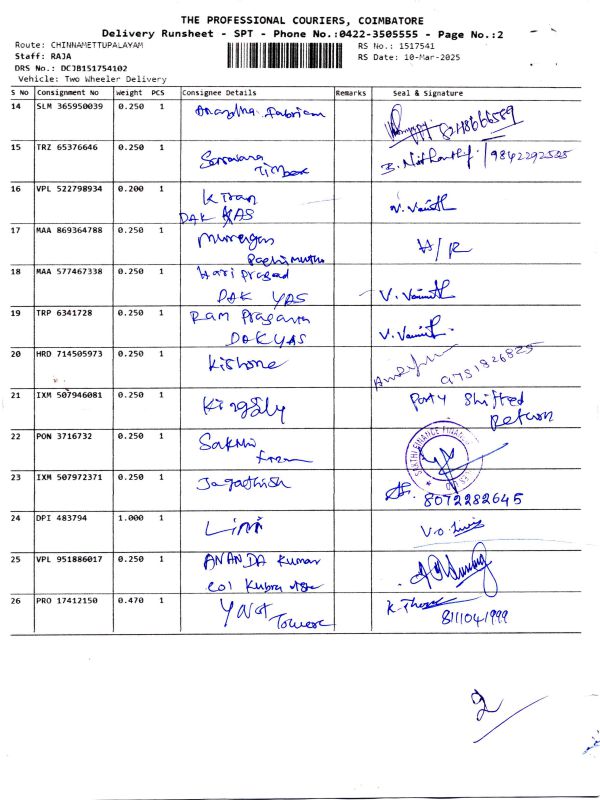 THE PROFESSIONAL COURIERS, COIMBATORE
Delivery Runsheet - SPT - Phone No.:0422-3505555 - Page No.:2
Route: CHINNAMETTUPALAYAM RS No.: 1517541
Staff: RAJA RS Date: 10-Mar-2025
DRS No.: DCJB151754102
Vehicle: Two Wheeler Delivery
S No Consignment No Weight PCS Consignee Details Remarks Seal & Signature
14 SLM 365950039 0.250 1
15 TRZ 65376646 0.250 1 9842292505
16 VPL 522798934 0.200 1 K Iran V. Vainith
DAK YAS
17 MAA 869364788 0.250 1 Murugan H/R
Pachimuthu
18 MAA 577467338 0.250 1 Hari Prasad V. Vainith
DAK YAS
19 TRP 6341728 0.250 1 Ram Prasanna V. Vainith
DAK YAS
20 HRD 714505973 0.250 1 Kishore 9751926825
21 IXM 507946081 0.250 1 Party Shifted
Return
22 PON 3716732 0.250 1 Sakthi
SAKTHI FINANCE
23 IXM 507972371 0.250 1 Jagathish 8072282645
24 DPI 483794 1.000 1
25 VPL 951886017 0.250 1 ANANDA Kumar
26 PRO 17412150 0.470 1 8111041999
Tower
2